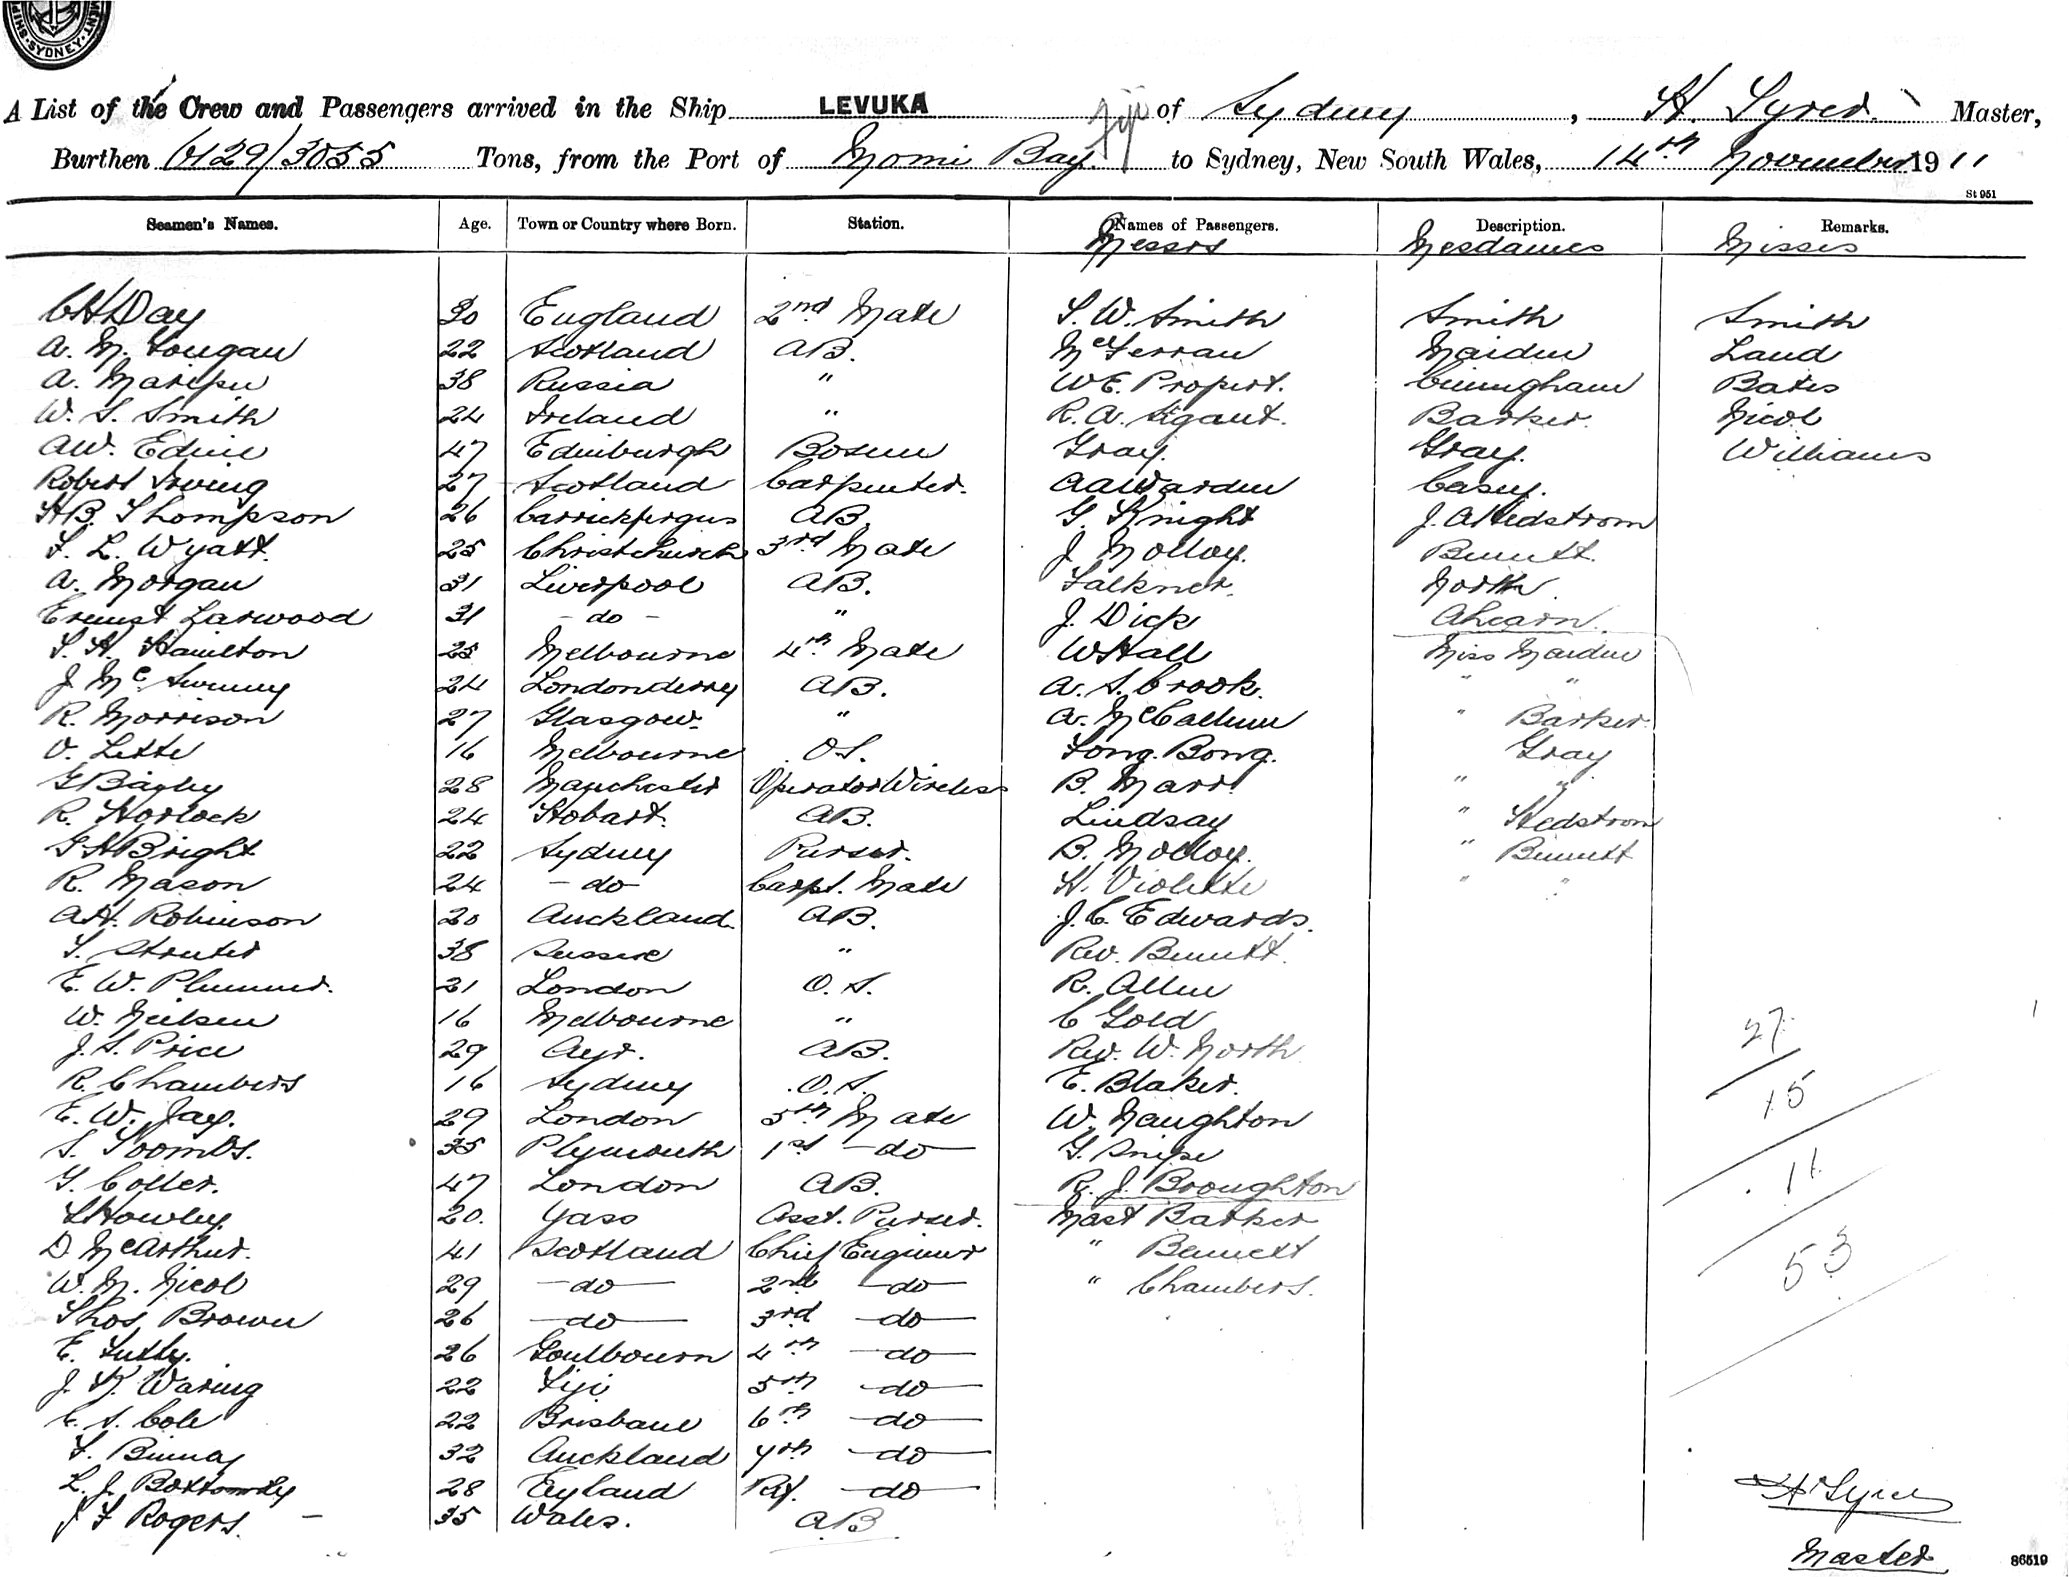 SYDNEY
A List of the Crew and Passengers arrived in the Ship LEVUKA Fiji of Sydney, H. Syred. Master,
Burthen 6129/3055 Tons, from the Port of Momi Bay. to Sydney, New South Wales, 14th November 1911
St 951
Seamen's Names. Age. Town or Country where Born. Station. Names of Passengers. Description. Remarks.
Messrs Mesdames Misses
C H Day 30 England 2nd Mate S. W. Smith Smith Smith
A. M. Gougan 22 Scotland AB. McFerran Maiden Laud
A. 38 Russia " W E. Propert. Cunningham Bates
W. S. Smith 24 Ireland " R. A. Barker. Nicol
AW. Edie 47 Edinburgh Bosun Gray. Gray. Williams
Robert Irving 27 Scotland Carpenter. A A Warden Casey.
H B. Thompson 26 Carrickfergus AB. G. Knight J. A Hedstrom
F. L. Wyatt. 25 Christchurch 3rd Mate J. Molloy. Bennett.
A. Morgan 31 Liverpool AB. Falkner. North.
Ernest Larwood 31 - do - " J. Dick Ahearn.
S. H. Hamilton 25 Melbourne 4th Mate W Hall Miss Maiden
J. Mc Swiney 24 Londonderry AB. A. S. Crook. " "
R. Morrison 27 Glasgow. " A. McCallum " Barker
O. Lette 16 Melbourne O.S. Fong. Bong. Gray
G Bagley 28 Manchester Operator Wireless B. Marr. " "
R. Horlock 24 Hobart. AB. Lindsay " Hedstrom
G H Bright 22 Sydney Purser. B. Molloy. " Bennett
R. Mason 24 - do Carpt. Mate H. Violette " "
A H. Robinson 20 Auckland. AB. J. C. Edwards.
S. 38 Sussex " Rev. Bennett.
E. W. Plummer. 21 London O. S. R. Allen
W. Neilsen 16 Melbourne " C Gold
J. S. Price 29 Ayr. AB. Rev. W. North. 27
R. Chambers 16 Sydney .O.S. E. Blaker.
E. W. Jay. 29 London 5th Mate W. Naughton 15
S. Toombs. 35 Plymouth 1st - do - G. Snipe
G. Coller. 47 London AB. R. J. Broughton 11
Howley. 20. Yass Asst. Purser. Mast Barker
D McArthur. 41 Scotland Chief Engineer " Bennett 53
W. M. Nicol 29 - do - 2nd - do - " Chambers.
Thos. Brown 26 - do - 3rd - do -
E. Tutty. 26 Goulbourn 4th - do -
J. K. Waring 22 Fiji 5th - do -
E. S. Cole 22 Brisbane 6th - do -
F. Binney 32 Auckland 7th - do -
L. J. Bottomley 28 England Rf. - do -
J F Rogers. - 35 Wales. AB.
H Syred
Master
86519